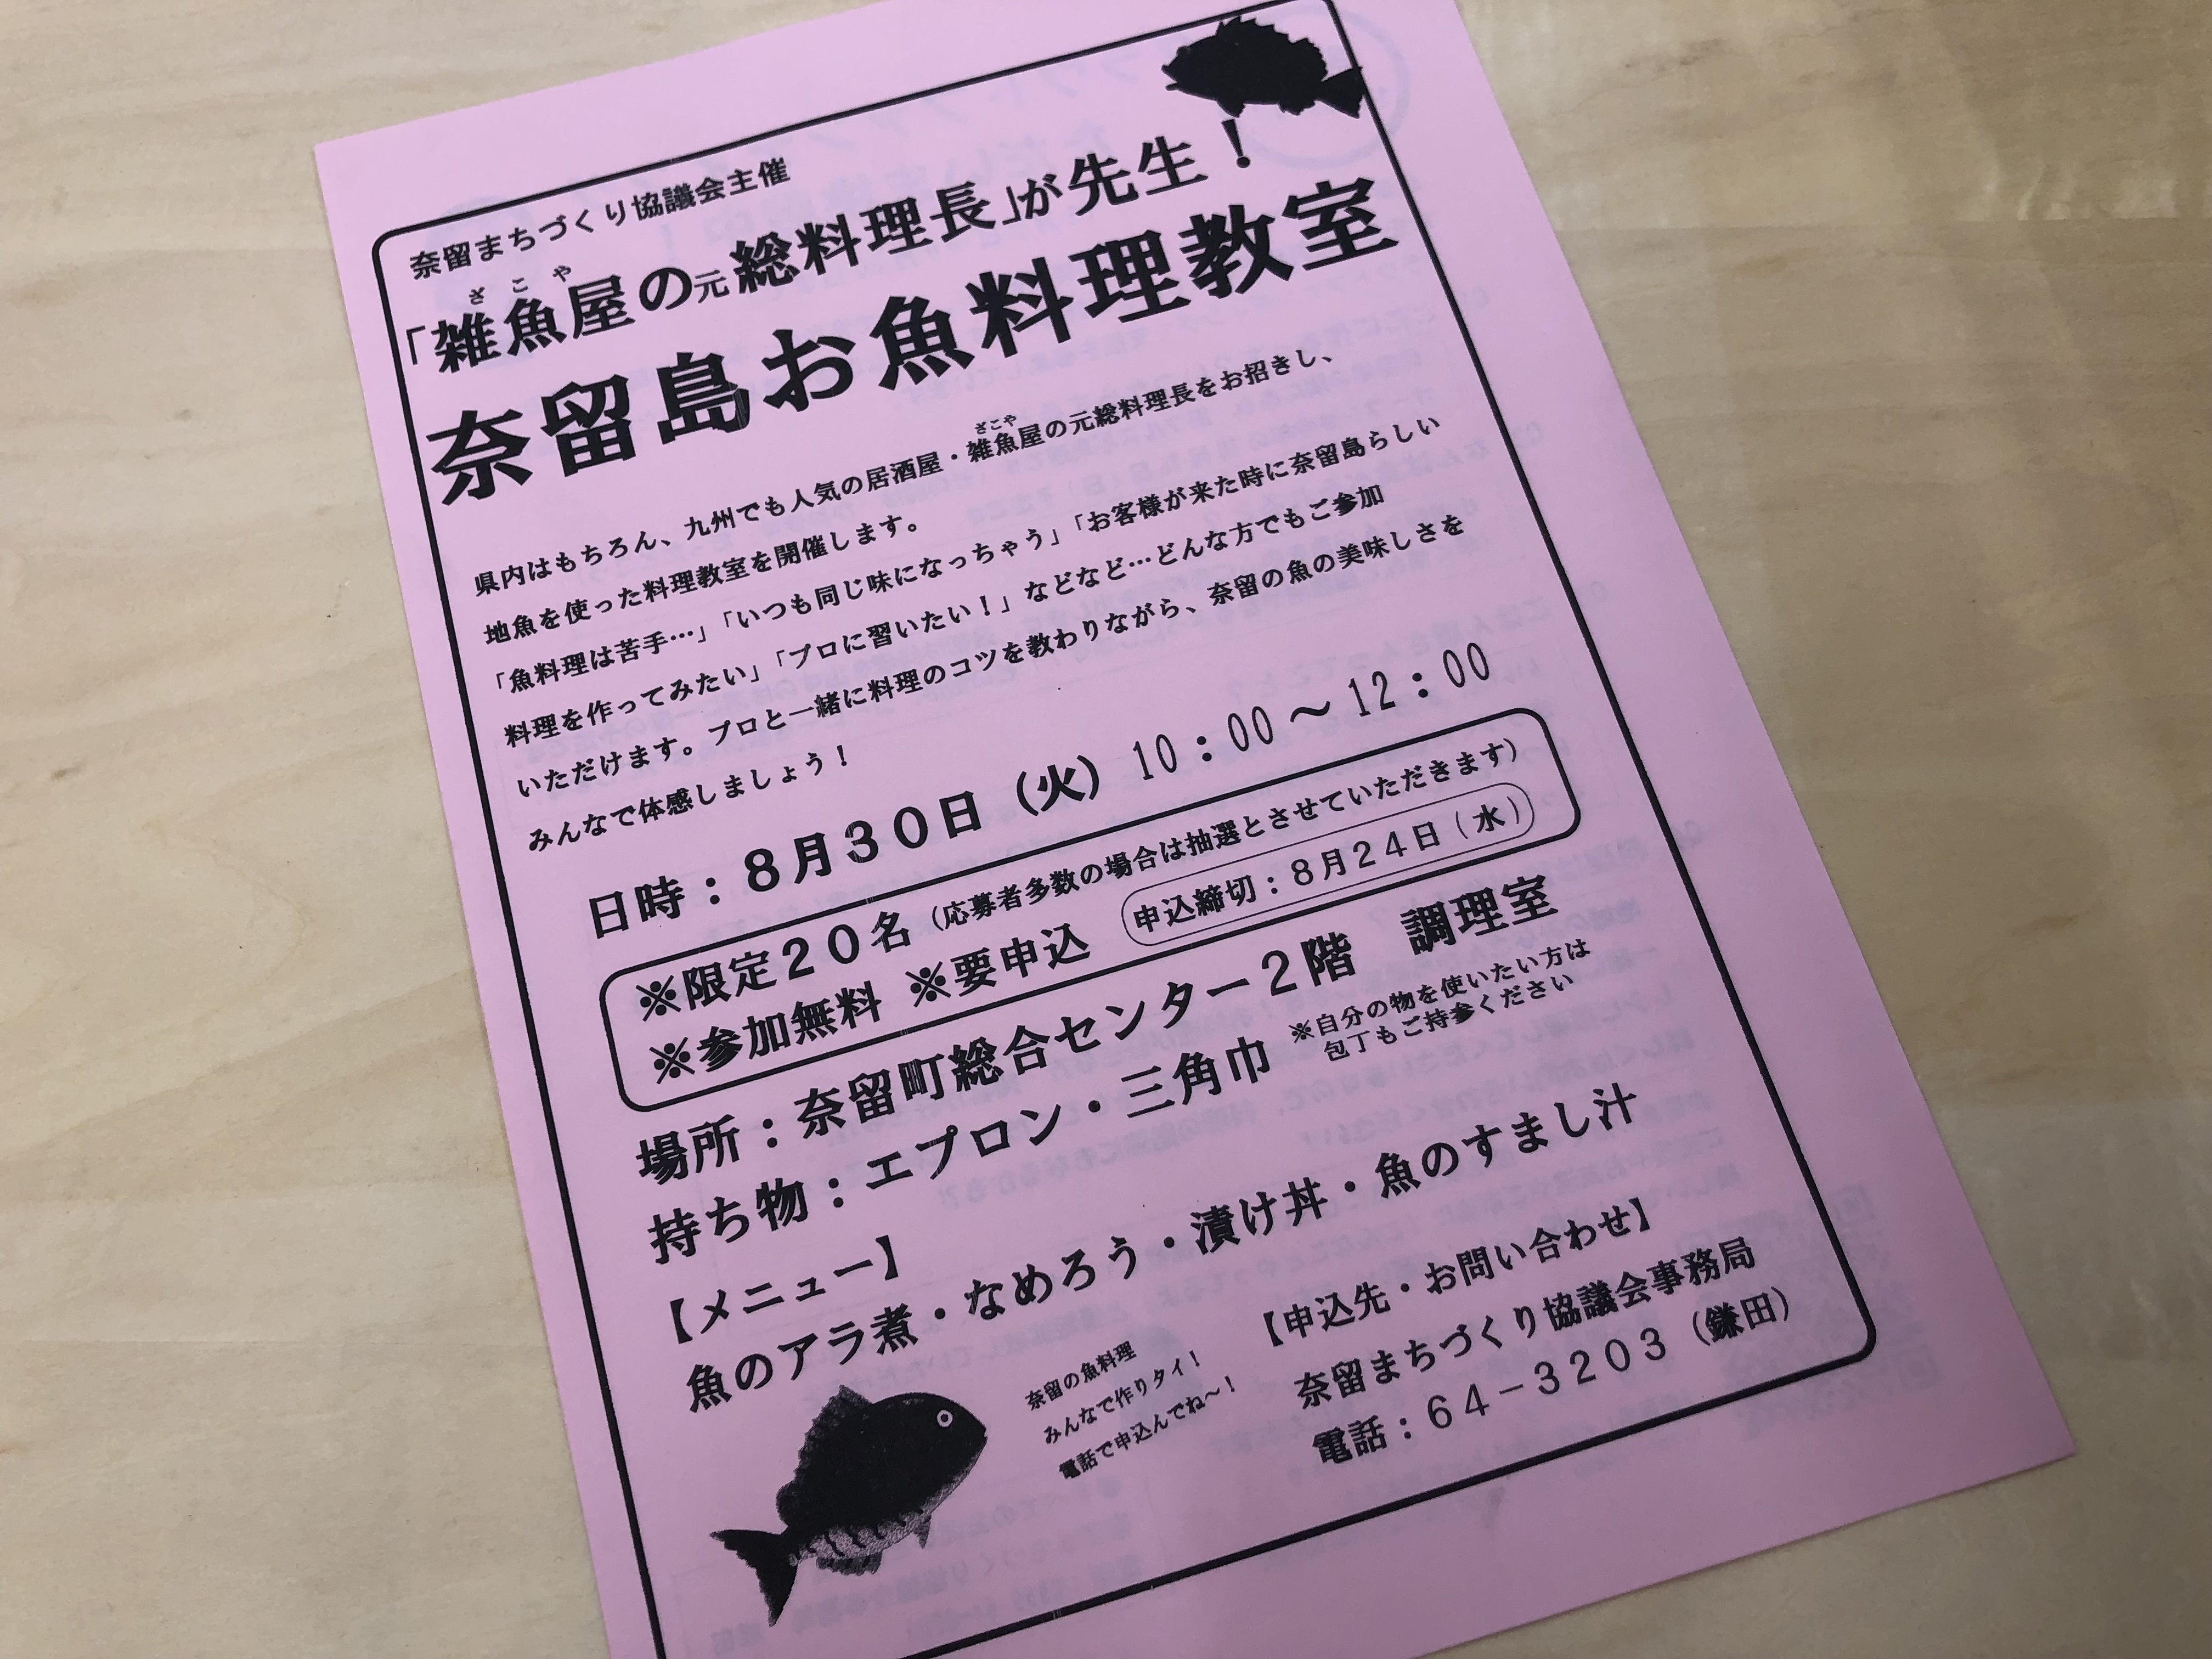 奈留まちづくり協議会主催
「雑魚屋の元総料理長」が先生！
ざこや
奈留島お魚料理教室
県内はもちろん、九州でも人気の居酒屋・雑魚屋の元総料理長をお招きし、
ざこや
地魚を使った料理教室を開催します。
「魚料理は苦手…」「いつも同じ味になっちゃう」「お客様が来た時に奈留島らしい
料理を作ってみたい」「プロに習いたい！」などなど…どんな方でもご参加
いただけます。プロと一緒に料理のコツを教わりながら、奈留の魚の美味しさを
みんなで体感しましょう！
日時：８月３０日（火）10：00～12：00
※限定２０名（応募者多数の場合は抽選とさせていただきます）
※参加無料 ※要申込 申込締切：８月２４日（水）
場所：奈留町総合センター２階　調理室
持ち物：エプロン・三角巾 ※自分の物を使いたい方は
包丁もご持参ください
【メニュー】
魚のアラ煮・なめろう・漬け丼・魚のすまし汁
奈留の魚料理
みんなで作りタイ！
電話で申込んでね～！
【申込先・お問い合わせ】
奈留まちづくり協議会事務局
電話：６４－３２０３（鎌田）